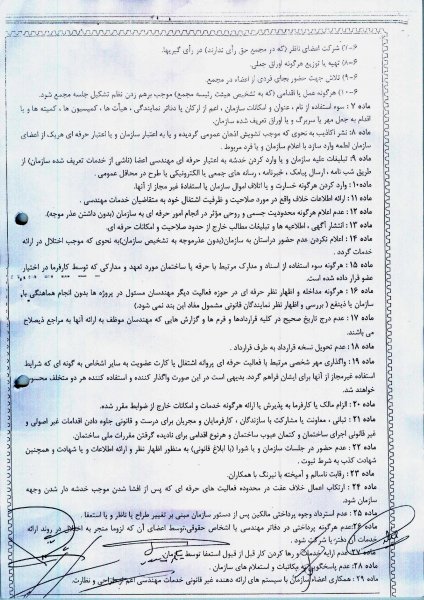 ۶-۷) شرکت اعضای ناظر (که در مجمع حق رأی ندارند) در رأی گیریها.
۶-۸) تهیه یا توزیع هرگونه اوراق جعلی.
۶-۹) تلاش جهت حضور بجای فردی از اعضاء در مجمع.
۶-۱۰) هرگونه عمل یا اقدامی (که به تشخیص هیئت رئیسه مجمع) موجب برهم زدن نظم تشکیل جلسه مجمع شود.
ماده ۷ : سوء استفاده از نام ، عنوان و امکانات سازمان، اعم از ارکان یا دفاتر نمایندگی ، هیأت ها ، کمیسیون ها ، کمیته ها و یا
اقدام به جعل مهر یا سربرگ و یا اوراق تعریف شده سازمان.
ماده ۸: نشر اکاذیب به نحوی که موجب تشویش اذهان عمومی گردیده و یا به اعتبار سازمان و یا اعتبار حرفه ای هریک از اعضای
سازمان لطمه وارد سازد با اعلام سازمان و یا فرد مربوط .
ماده ۹: تبلیغات علیه سازمان و یا وارد کردن خدشه به اعتبار حرفه ای مهندسی اعضا (ناشی از خدمات تعریف شده سازمان) از
طریق شب نامه ، ارسال پیامک ، خبرنامه ، رسانه های جمعی یا الکترونیکی یا طرح در محافل عمومی .
ماده۱۰: وارد کردن هرگونه خسارت و یا اتلاف اموال سازمان یا استفاده غیر مجاز از آنها.
ماده ۱۱ : ارائه اطلاعات خلاف واقع در مورد صلاحیت و ظرفیت اشتغال خود به متقاضیان خدمات مهندسی .
ماده ۱۲: عدم اعلام هرگونه محدودیت جسمی و روحی مؤثر در انجام امور حرفه ای به سازمان (بدون داشتن عذر موجه).
ماده ۱۳: انتشار آگهی ، اطلاعیه ها و تبلیغات مطالب خارج از حدود صلاحیت و امکانات حرفه ای.
ماده ۱۴ : اعلام نکردن عدم حضور دراستان به سازمان(بدون عذرموجه به تشخیص سازمان)به نحوی که موجب اختلال در ارائه
خدمات گردد .
ماده ۱۵ : هرگونه سوء استفاده از اسناد و مدارک مرتبط با حرفه یا ساختمان مورد تعهد و مدارکی که توسط کارفرما در اختیار
عضو قرار داده شده است.
ماده ۱۶ : هرگونه مداخله و اظهار نظر حرفه ای در حوزه فعالیت دیگر مهندسان مسئول در پروژه ها بدون انجام هماهنگی با
سازمان یا ذینفع ( بررسی و اظهار نظر نمایندگان قانونی مشمول مفاد این بند نمی شود.)
ماده ۱۷ : عدم درج تاریخ صحیح در کلیه قراردادها و فرم ها و گزارش هایی که مهندسان موظف به ارائه آنها به مراجع ذیصلاح
می باشند.
ماده ۱۸ : عدم تحویل نسخه قرارداد به طرف قرارداد .
ماده ۱۹ : واگذاری مهر شخصی مرتبط با فعالیت حرفه ای پروانه اشتغال یا کارت عضویت به سایر اشخاص به گونه ای که شرایط
استفاده غیرمجاز از آنها برای ایشان فراهم گردد. بدیهی است در این صورت واگذار کننده و استفاده کننده هر دو متخلف محسوب
خواهند شد.
ماده ۲۰: الزام مالک یا کارفرما به پذیرش یا ارائه هرگونه خدمات و امکانات خارج از ضوابط مقرر شده.
ماده ۲۱ : تبانی ، معاونت یا مشارکت با سازندگان ، کارفرمایان و مجریان برای درست و قانونی جلوه دادن اقدامات غیر اصولی و
غیر قانونی اجرای ساختمان و کتمان عیوب ساختمان و هرنوع اقدامی برای نادیده گرفتن مقررات ملی ساختمان.
ماده ۲۲ : عدم حضور در جلسات سازمان و یا شورا (با ابلاغ قانونی) به منظور اظهار نظر و ارائه اطلاعات و یا شهادت و همچنین
شهادت کذب به شرط ثبوت .
ماده ۲۳ : رقابت ناسالم و آمیخته با نیرنگ با همکاران.
ماده ۲۴ : ارتکاب اعمال خلاف عفت در محدوده فعالیت های حرفه ای که پس از افشا شدن موجب خدشه دار شدن وجهه
سازمان شود.
ماده ۲۵: عدم استرداد وجوه پرداختی مالکین پس از دستور سازمان مبنی بر تغییر طراح یا ناظر و یا استعفا.
ماده ۲۶:عدم هرگونه پرداختی در دفاتر مهندسی یا اشخاص حقوقی،توسط اعضای آن که لزوما منجر به اختلال در روند ارائه
خدمات آن دفتر یا شرکت شود .
ماده ۲۷: عدم ارایه خدمات و رها کردن کار قبل از قبول استعفا توسط سازمان.
ماده ۲۸: عدم پاسخگویی به مکاتبات و استعلام های سازمان.
ماده ۲۹ : همکاری اعضاء سازمان با سیستم های ارائه دهنده غیر قانونی خدمات مهندسی اعم از طراحی و نظارت.